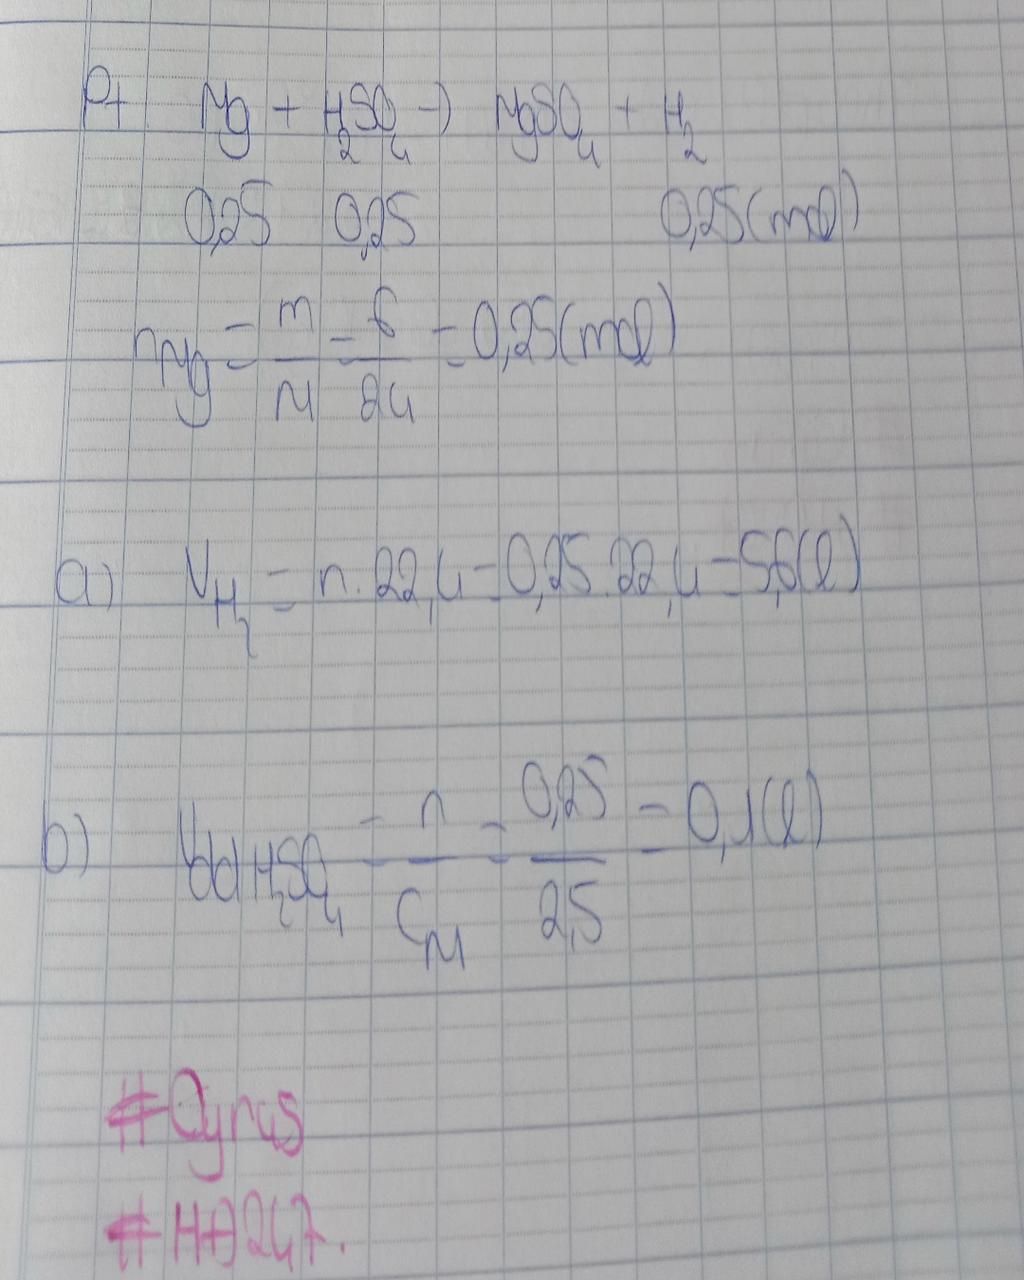 Pt Mg + H₂SO₄ → MgSO₄ + H₂
0,25 0,25 0,25 (mol)
nMg = m/M = 6/24 = 0,25 (mol)
a) VH₂ = n. 22,4 = 0,25. 22,4 = 5,6 (l)
b) Vdd H₂SO₄ = n/CM = 0,25/2,5 = 0,1 (l)
#Cyrus
#HĐ247.